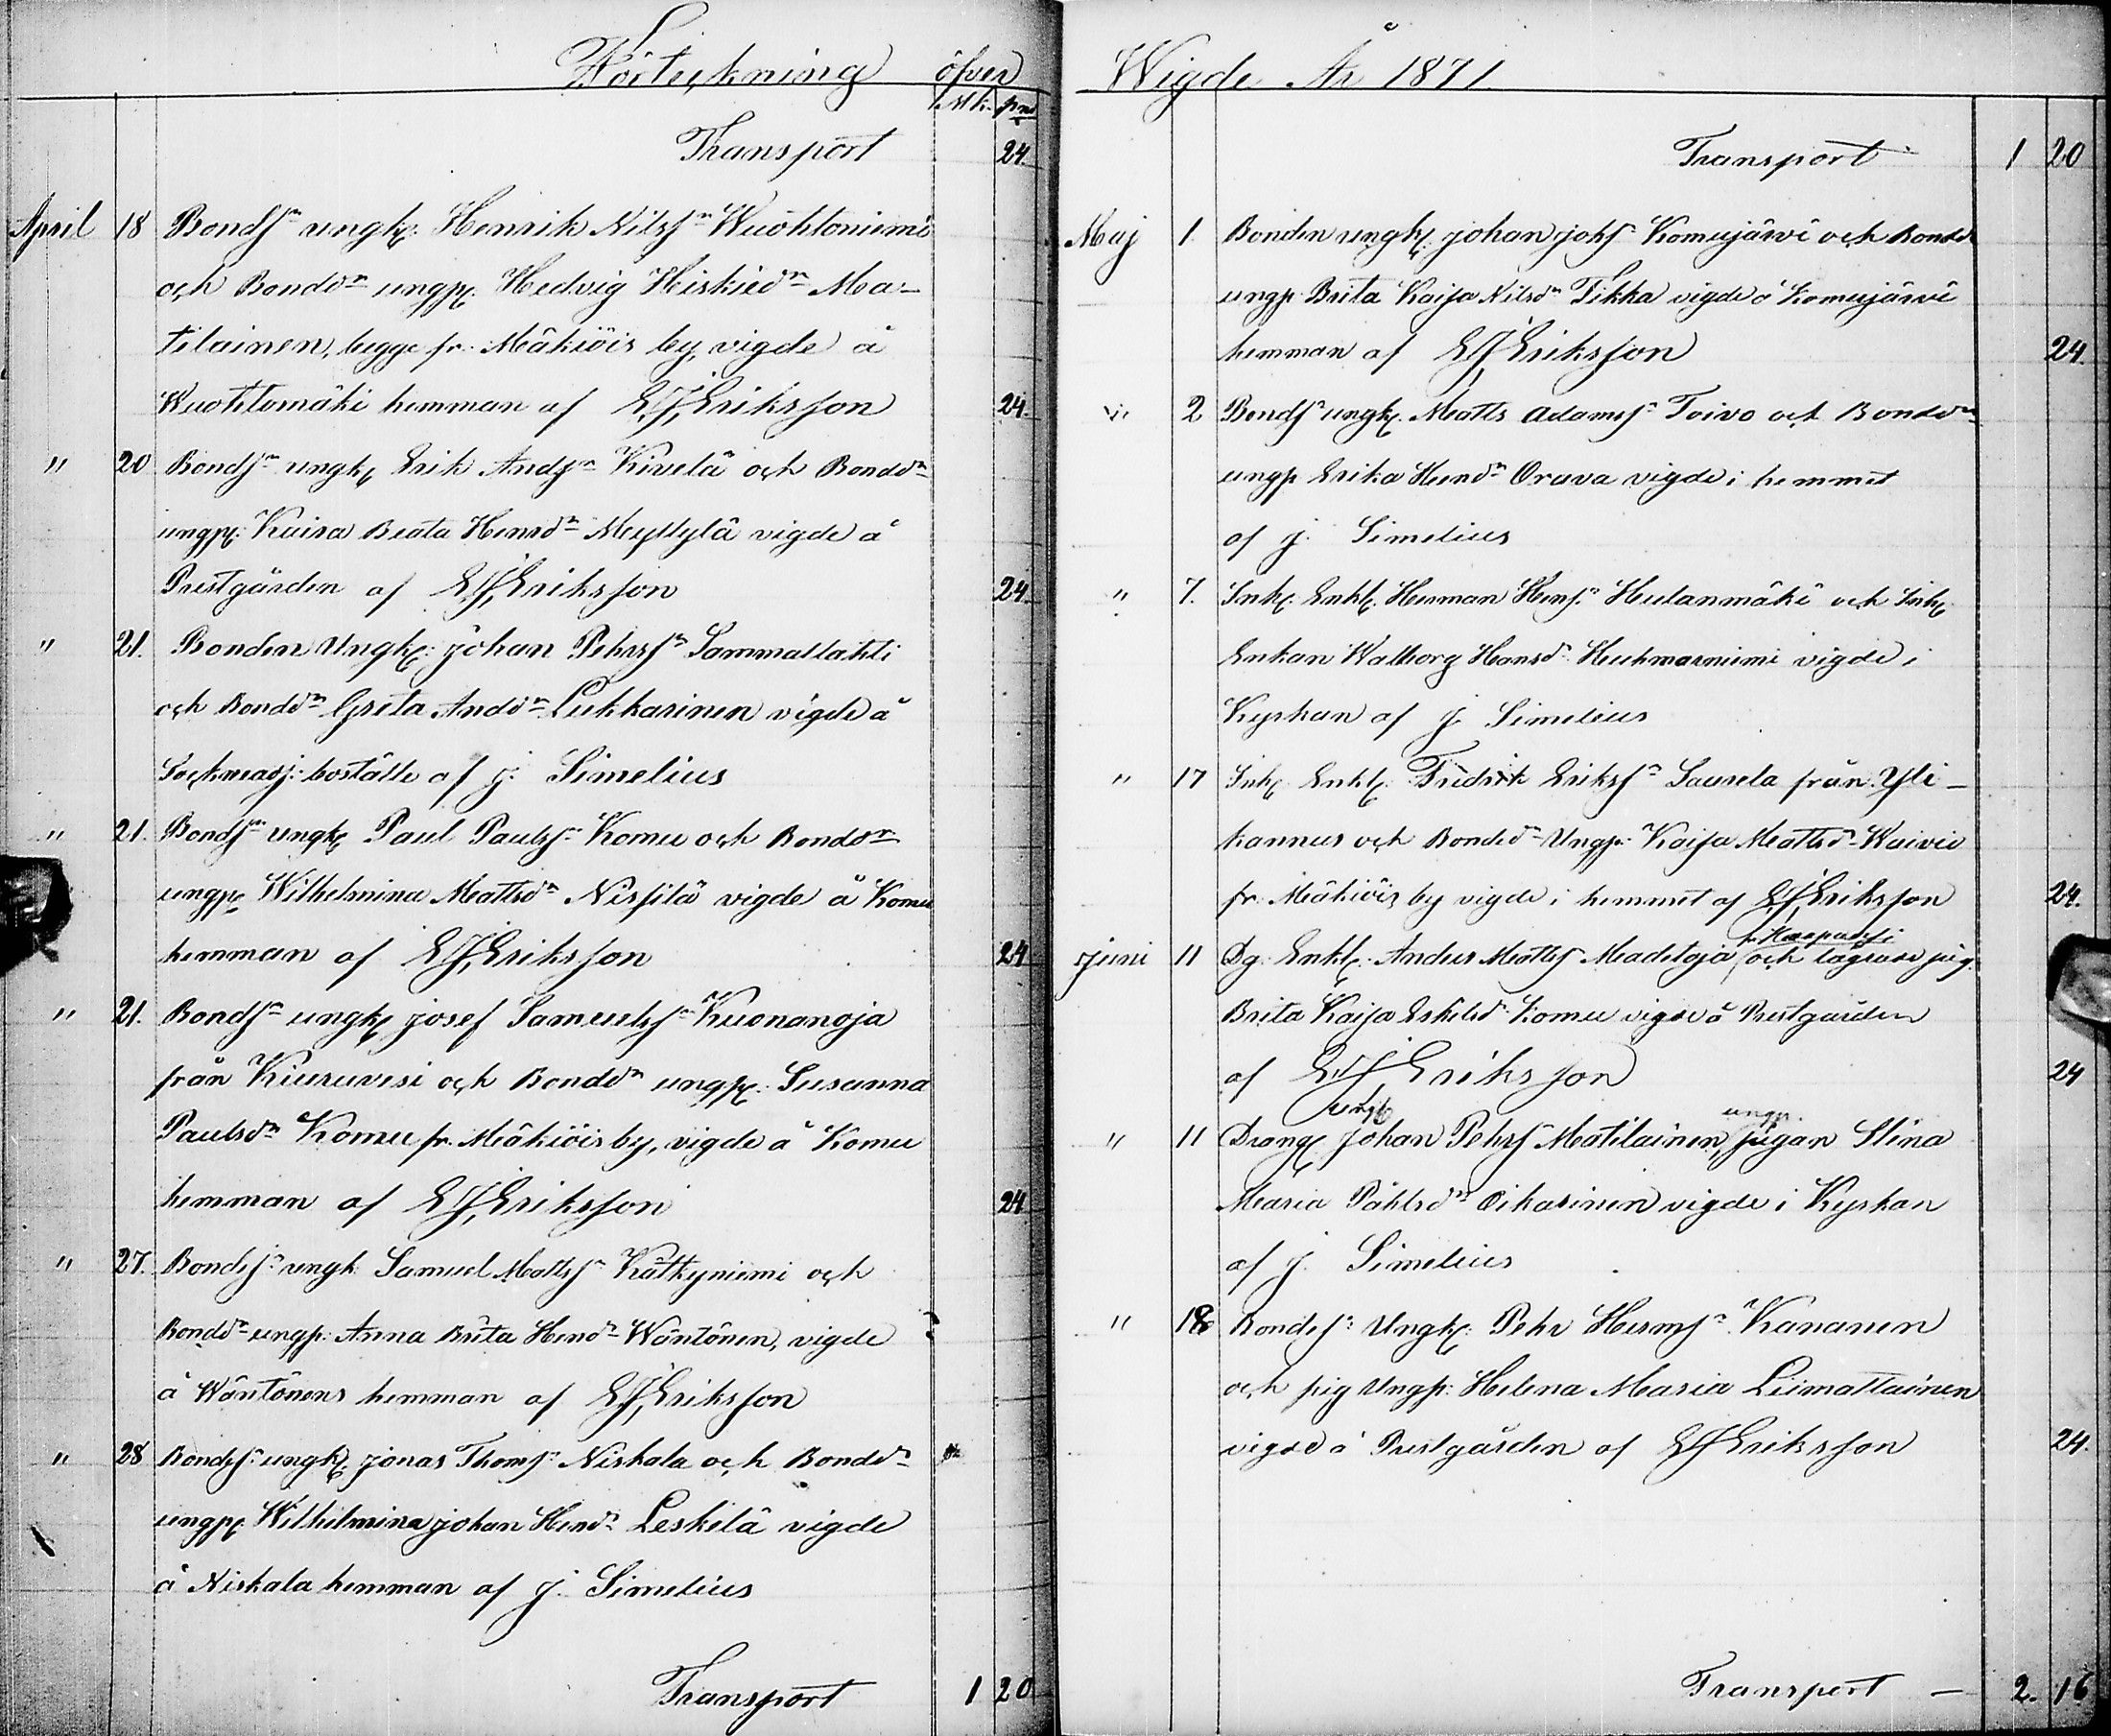 Förteckning öfver
Mk. pni
Transport 24.
April 18 Bondsn ungk: Henrik Nilsson Wuohtoniemi
och Bonddr ungp: Hedvig Heiskiedr Ma-
tilainen, begge fr. Mäkiöis by, vigde å
Wuohtomäki hemman af E.J. Eriksson 24.
" 20 Bondsn ungk: Erik Andsn Kivelä och Bonddr
ungp: Kaisa Beata Henrsdr Myllylä vigde å
Prestgården af E.J. Eriksson 24.
" 21. Bonden Ungk: Johan Pehrsn Sammallahti
och Bonddr Greta Anddr Lukkarinen vigde å
boställe af J. Simelius
" 21. Bondsn ungk: Paul Paulsn Komu och Bonddr
ungp: Wilhelmina Mattsdr Nissilä vigde å Komu
hemman af E.J. Eriksson 24
" 21. Bondsn ungk: Josef Samuelsn Kuonanoja
från Kiuruvesi och Bonddr ungp: Susanna
Paulsdr Komu fr. Mäkiöis by, vigde å Komu
hemman af E.J. Eriksson 24
" 27. Bondsn ungk: Samuel Mattsn Kätkyniemi och
Bonddr ungp: Anna Brita Hendr Wäntönen, vigde
å Wäntönens hemman af E.J. Eriksson
" 28 Bondsn ungk: Jonas Thomsn Niskala och Bonddr
ungp: Wilhelmina Johan Hendr Leskelä vigde
å Niskala hemman af J. Simelius
Transport 1 20
Wigde År 1871.
Transport 1 20
Maj 1. Bonden ungk: Johan Johsn Komujärvi och Bondd
ungp: Brita Kaisa Nilsdr Tikka vigde å Komujärvi
hemman af E.J. Eriksson 24.
" 2 Bondsn ungk: Matts Adamsn Toivo och Bonddr
ungp Erika Hendr Orava vigde i hemmet
af J. Simelius
" 7. Inh: Enkl: Herman Hensn Hulanmäki och Inh:
Enkan Walborg Hansdr Huhmarniemi vigde i
Kyrkan af J. Simelius
" 17 Inh: Enkl: Fredrik Eriksn Saurela från Yli-
kannus och Bonddr Ungp: Kaisa Mattsdr Waivio
fr. Mäkiöis by vigde i hemmet af E.J. Eriksson 24.
fr. Haapajärvi
Juni 11 Dg: Enkl: Anders Matts Madetoja och pig:
Brita Kaisa Eskelsdr Komu vigde å Prestgården
af E.J. Eriksson 24
ungk ungp.
" 11 Dräng: Johan Pehrs Matilainen, pigan Stina
Maria Påhlsdr Oikarinen vigde i Kyrkan
af J. Simelius
" 18 Bondesn Ungk: Pehr Hermsn Kananen
och pig Ungp: Helena Maria Liimattainen
vigde å Prestgården af E.J. Eriksson 24.
Transport — 2. 16